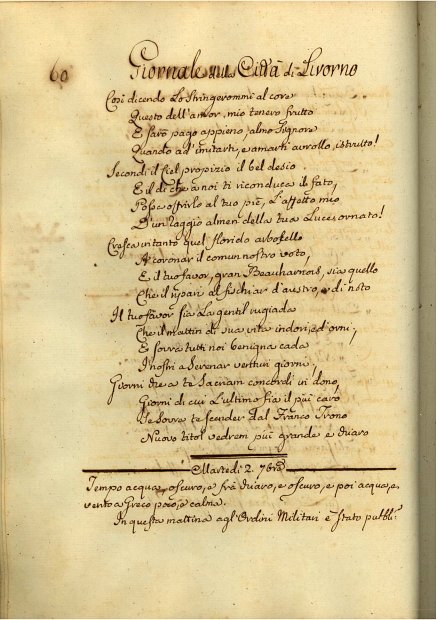 60 Giornale della Città di Livorno
Così dicendo Lo Stringerommi al core
Questo dell'amor, mio tenero frutto
E sarò pago appieno, almo Signore
Quando ad'imitarti, e amarti avrollo istrutto!
Secondi il Ciel propizio il bel desio
E il dì che a noi ti riconduca il fato,
Possa offrirlo al tuo piè, L'affetto mio
D'un raggio almen della tua Luce ornato!
Cresca intanto quel florido arboscello
A coronar il comun nostro voto,
E il tuo favor, gran Beauharnois, sia quello
Che il ripari al fischiar d'austro, e di noto
Il tuo favor sia La gentil rugiada
Che il mattin di sua vita indori, ed orni,
E sovra tutti noi benigna cada
I nostri a Serenar venturi giorni,
Giorni che a te Sacriam concordi in dono,
Giorni di cui L'ultimo fia il più caro
Se Sovra te scender dal Franco Trono
Nuovo titol vedrem più grande e chiaro
Martedì 2. 7bre
Tempo acqua, oscuro, e frà chiaro, e oscuro, e poi acqua, e
vento a Greco poco, e calma.
In questa mattina agl'Ordini Militari è stato pubbli: